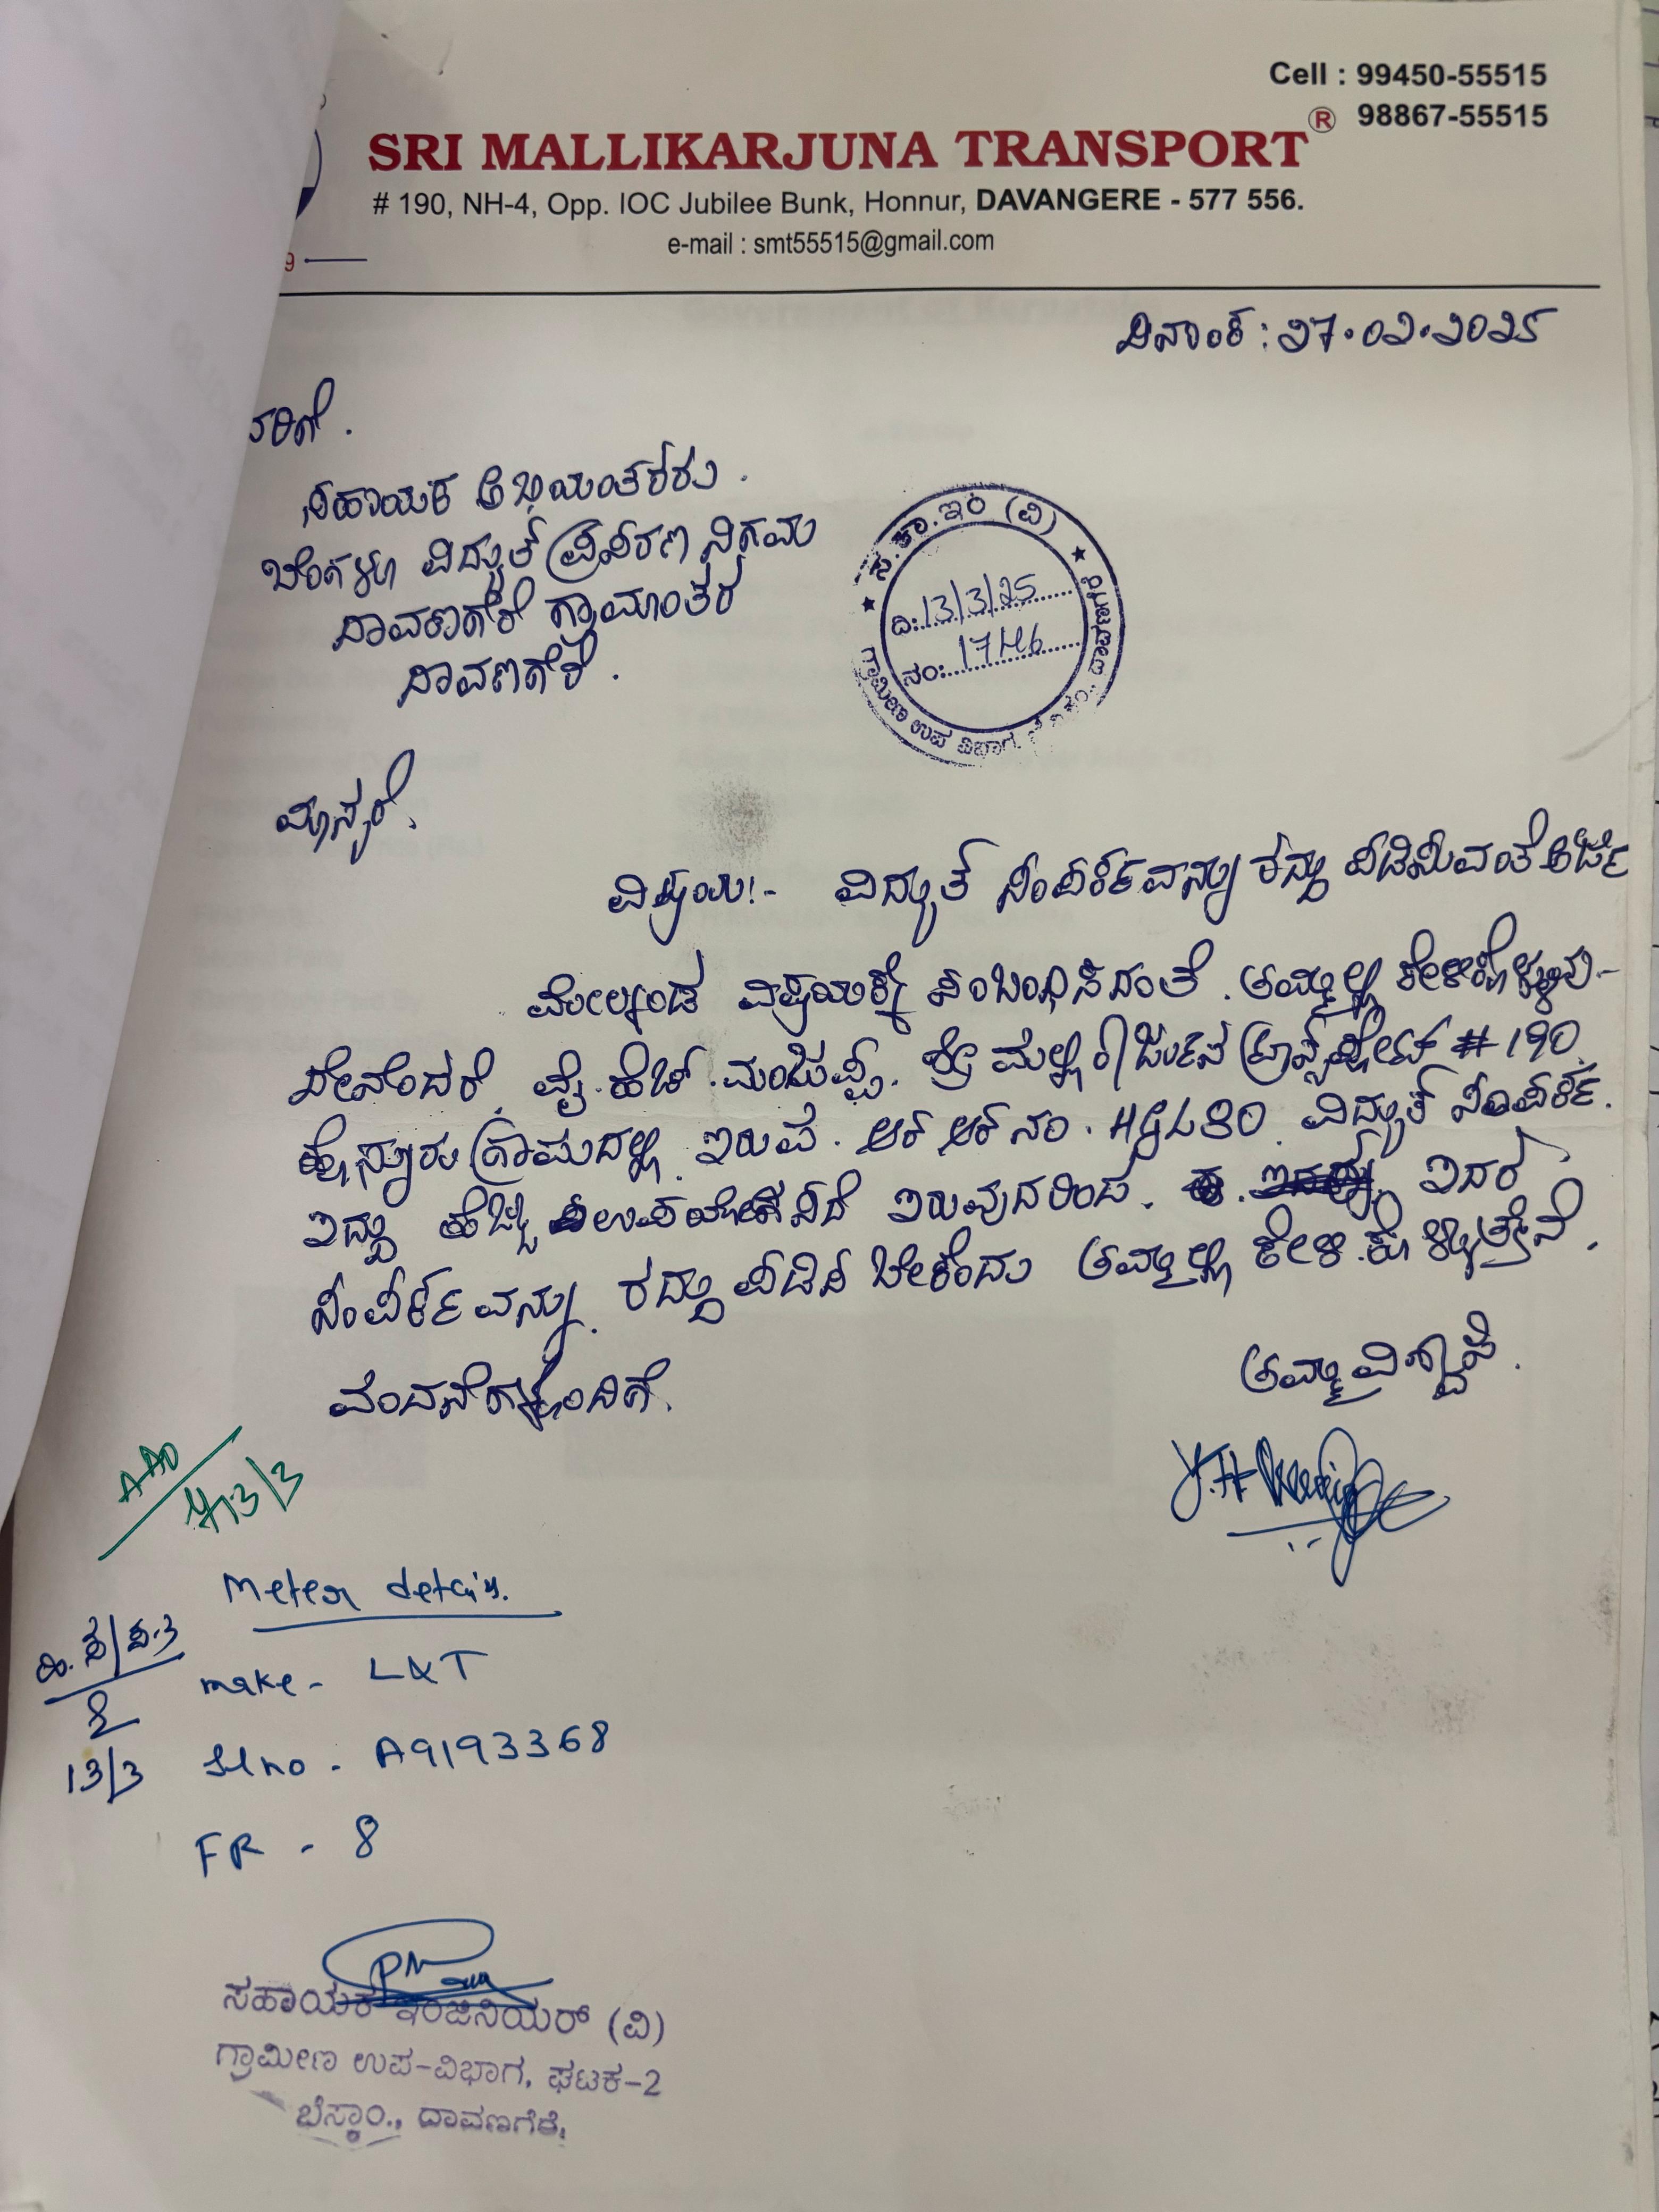 Cell : 99450-55515
98867-55515
SRI MALLIKARJUNA TRANSPORT®
# 190, NH-4, Opp. IOC Jubilee Bunk, Honnur, DAVANGERE - 577 556.
e-mail : smt55515@gmail.com
9
ದಿನಾಂಕ : 27.02.2025
ರಿಗೆ.
ಸಹಾಯಕ ಅಭಿಯಂತರರು.
ಬೆಂಗಳೂ ವಿದ್ಯುತ್ ಪ್ರಸರಣ ನಿಗಮ
ದಾವಣಗೆರೆ ಗ್ರಾಮಾಂತರ
ದಾವಣಗೆರೆ.
ಸ.ಕಾ.ಇಂ (ವಿ)
ದಿ: 13/3/25
ನಂ: 1746
ಗ್ರಾಮೀಣ ಉಪ ವಿಭಾಗ
ಮಾನ್ಯರೆ,
ವಿಷಯ:- ವಿದ್ಯುತ್ ಸಂಪರ್ಕವನ್ನು ರದ್ದು ಪಡಿಸುವಂತೆ ಅರ್ಜಿ
ಮೇಲ್ಕಂಡ ವಿಷಯಕ್ಕೆ ಸಂಬಂಧಿಸಿದಂತೆ. ತಮ್ಮಲ್ಲಿ ಕೇಳಿಕೊಳ್ಳುವು-
ದೇನೆಂದರೆ, ವೈ.ಹೆಚ್.ಮಂಜಪ್ಪ. ಶ್ರೀ ಮಲ್ಲಿಕಾರ್ಜುನ ಟ್ರಾನ್ಸ್‌ಪೋರ್ಟ್ # 190,
ಹೊನ್ನೂರು ಗ್ರಾಮದಲ್ಲಿ ಇರುವ. ಆರ್ ಆರ್ ನಂ. HGL80. ವಿದ್ಯುತ್ ಸಂಪರ್ಕ.
ಇದ್ದು ಹೆಚ್ಚು ಉಪಯೋಗವಿಲ್ಲದೆ ಇರುವುದರಿಂದ. ಇದರ
ಸಂಪರ್ಕವನ್ನು ರದ್ದು ಪಡಿಸ ಬೇಕೆಂದು ತಮ್ಮಲ್ಲಿ ಕೇಳಿ ಕೊಳ್ಳುತ್ತೇನೆ.
ವಂದನೆಗಳೊಂದಿಗೆ.
ತಮ್ಮ ವಿಶ್ವಾಸಿ.
AAO
13/3
Meter details.
make - L&T
13/3
Slno - A9193368
FR - 8
ಸಹಾಯಕ ಇಂಜಿನಿಯರ್ (ವಿ)
ಗ್ರಾಮೀಣ ಉಪ-ವಿಭಾಗ, ಘಟಕ-2
ಬೆಸ್ಕಾಂ., ದಾವಣಗೆರೆ.